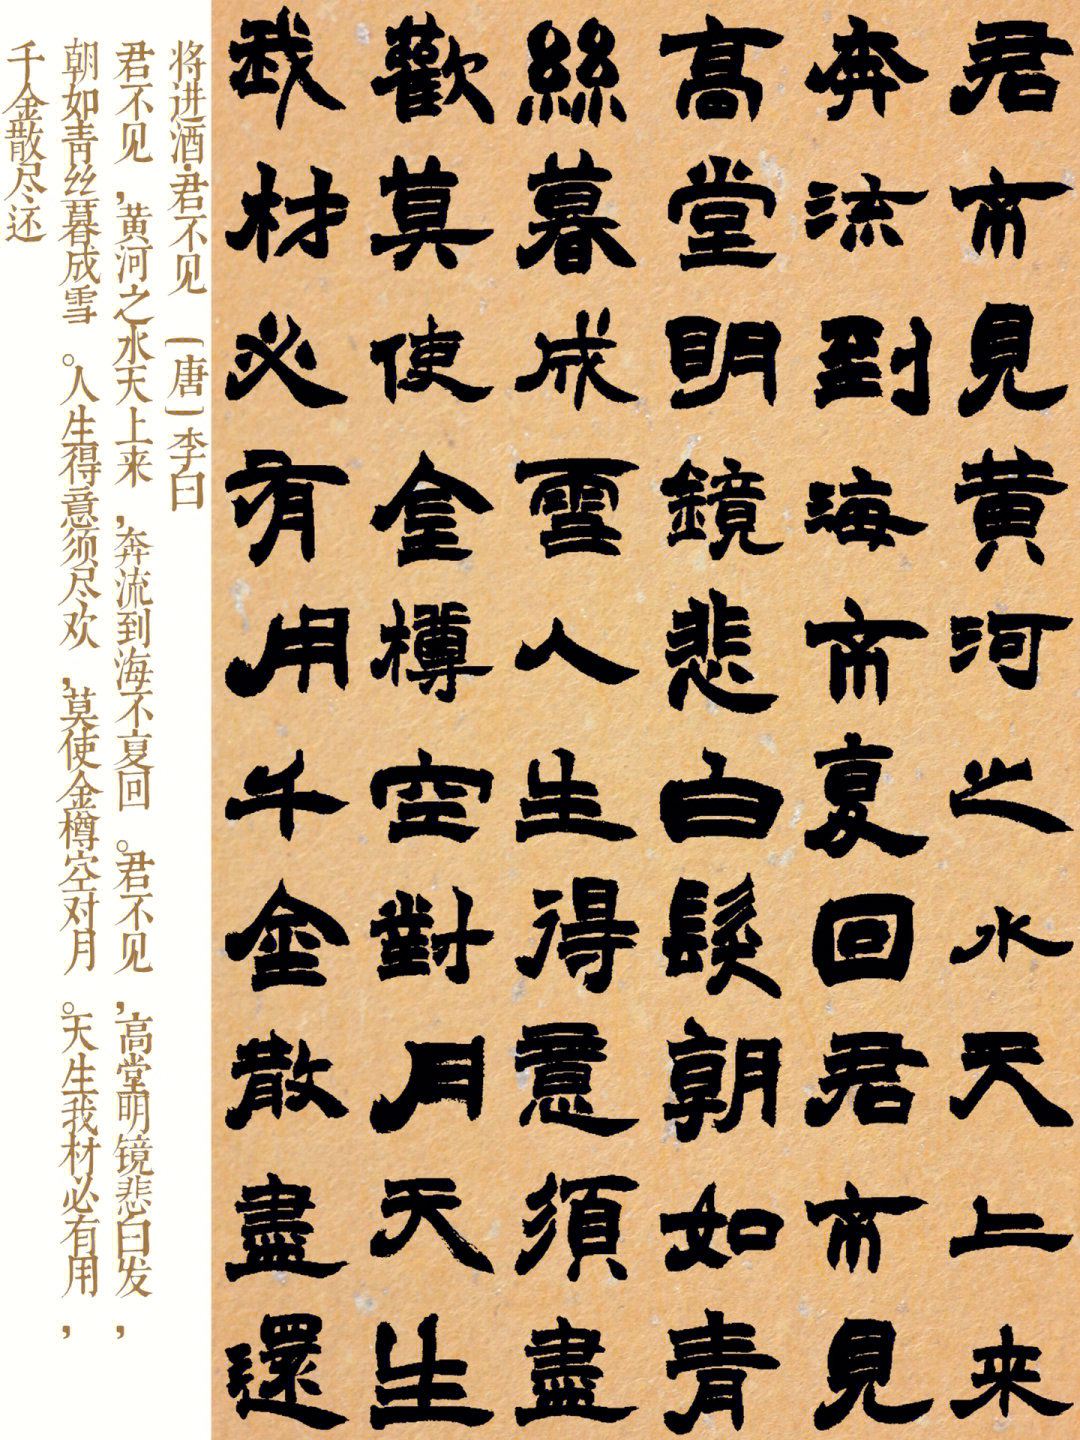 君不見黄河之水天上来
奔流到海不复回君不見
高堂明鏡悲白髮朝如青
絲暮成雪人生得意須盡
歡莫使金樽空對月天生
我材必有用千金散盡還
将进酒·君不见 [唐] 李白
君不见，黄河之水天上来，奔流到海不复回。君不见，高堂明镜悲白发，
朝如青丝暮成雪。人生得意须尽欢，莫使金樽空对月。天生我材必有用，
千金散尽还